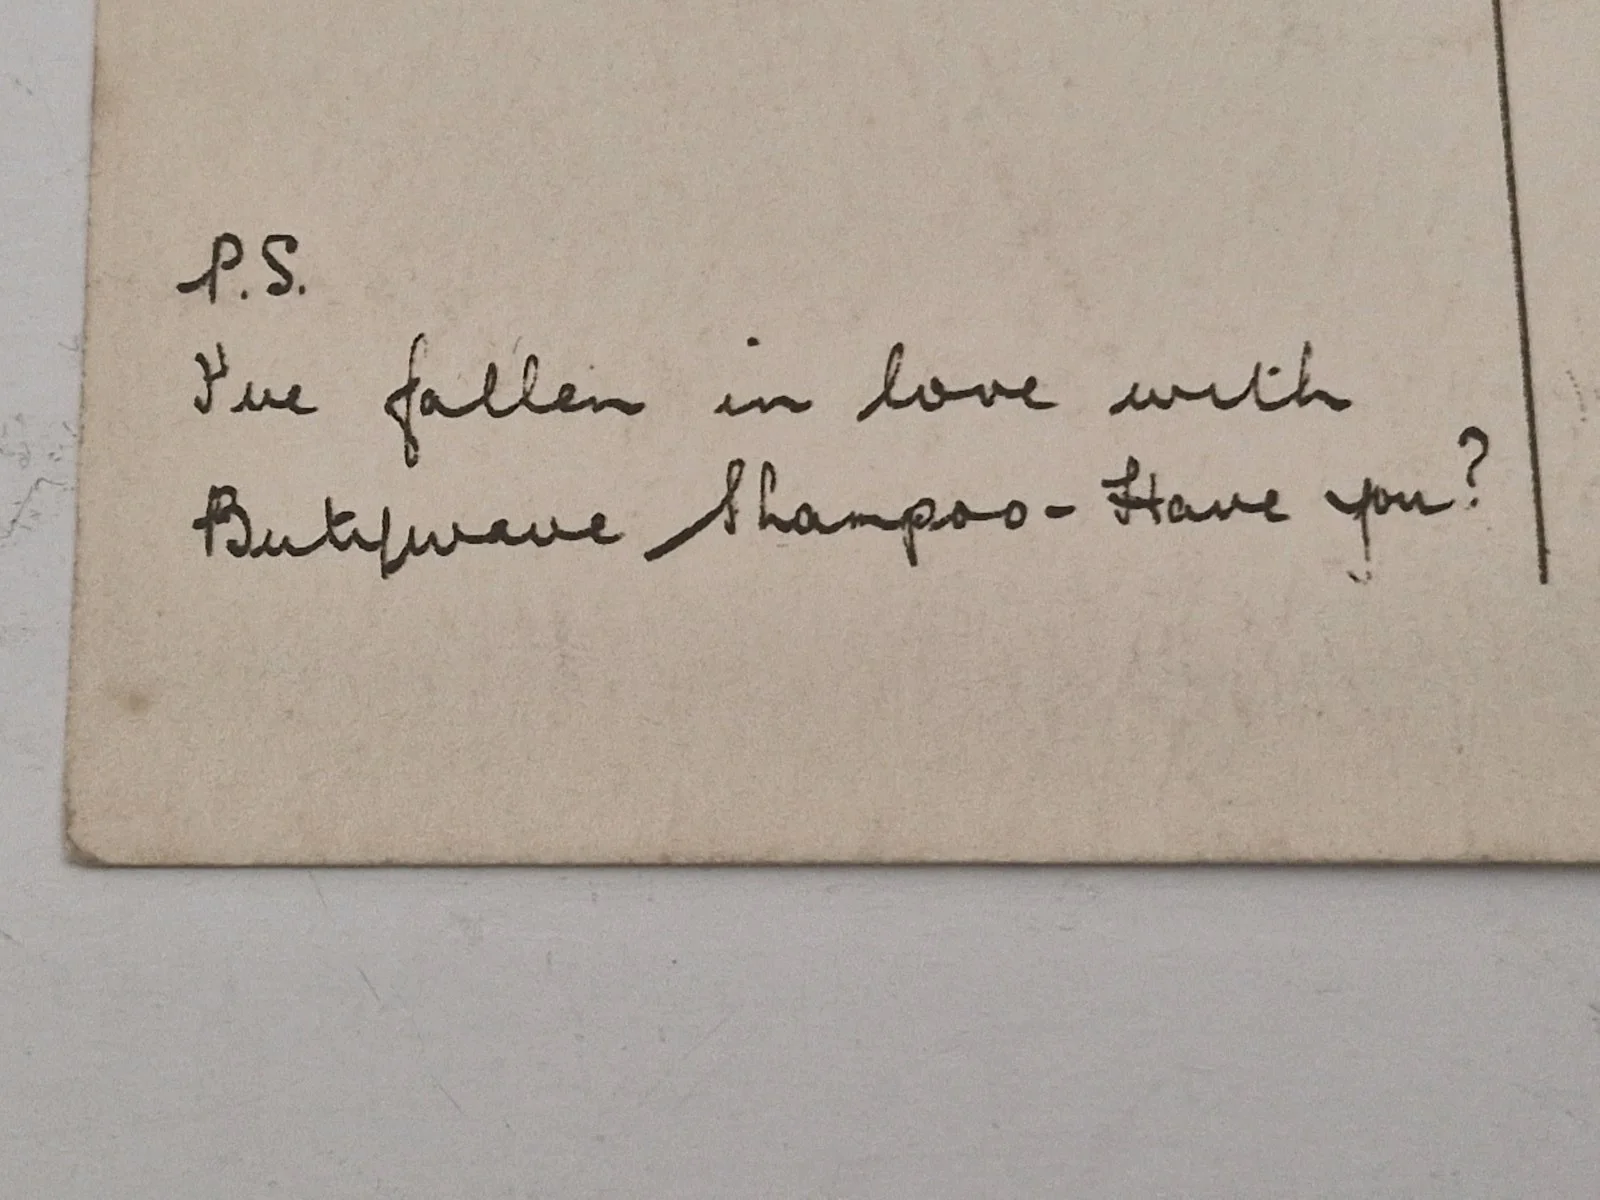 P.S.
I've fallen in love with
Butywave Shampoo - Have you?